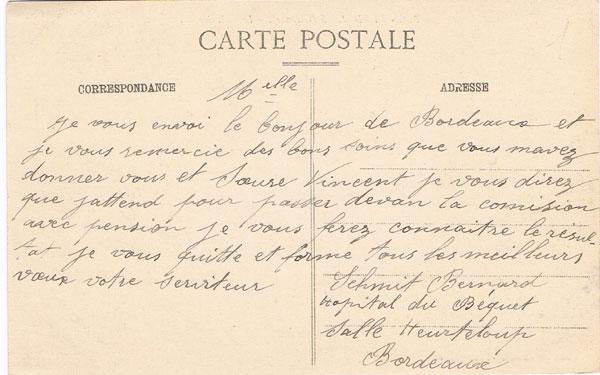 CARTE POSTALE
CORRESPONDANCE
ADRESSE
Melle
Je vous envoi le bonjour de Bordeaux et
je vous remercie des bons soins que vous mavez
donner vous et Sœure Vincent je vous direz
que jattend pour passer devan la comision
avec pension je vous ferez connaitre le resul-
tat je vous quitte et forme tous les meilleurs
vœux votre serviteur
Schmit Bernard
hopital du Béquet
Salle Heurteloup
Bordeaux